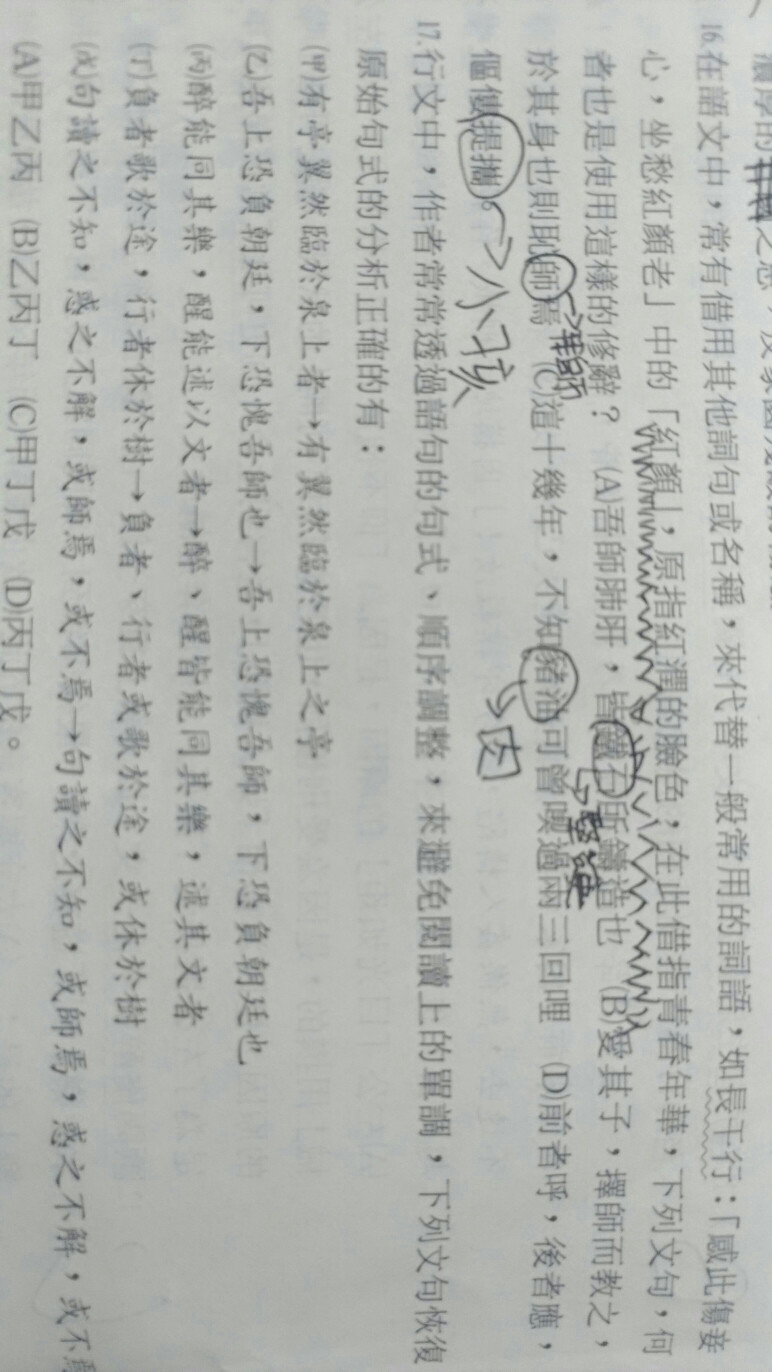 濃厚的
之思，
16.在語文中，常有借用其他詞句或名稱，來代替一般常用的詞語，如長干行：「感此傷妾
心，坐愁紅顏老」中的「紅顏」，原指紅潤的臉色，在此借指青春年華，下列文句，何
者也是使用這樣的修辭？ (A)吾師肺肝，皆鐵石所鑄造也 (B)愛其子，擇師而教之，
堅硬
於其身也則恥師焉 (C)這十幾年，不知豬油可曾喫過兩三回哩 (D)前者呼，後者應，
傴僂提攜。
小孩
肉
17.行文中，作者常常透過語句的句式、順序調整，來避免閱讀上的單調，下列文句恢復
原始句式的分析正確的有：
(甲)有亭翼然臨於泉上者→有翼然臨於泉上之亭
(乙)吾上恐負朝廷，下恐愧吾師也→吾上恐愧吾師，下恐負朝廷也
(丙)醉能同其樂，醒能述以文者→醉、醒皆能同其樂，述其文者
(丁)負者歌於途，行者休於樹→負者、行者或歌於途，或休於樹
(戊)句讀之不知，惑之不解，或師焉，或不焉→句讀之不知，或師焉，惑之不解，或不焉
(A)甲乙丙 (B)乙丙丁 (C)甲丁戊 (D)丙丁戊。